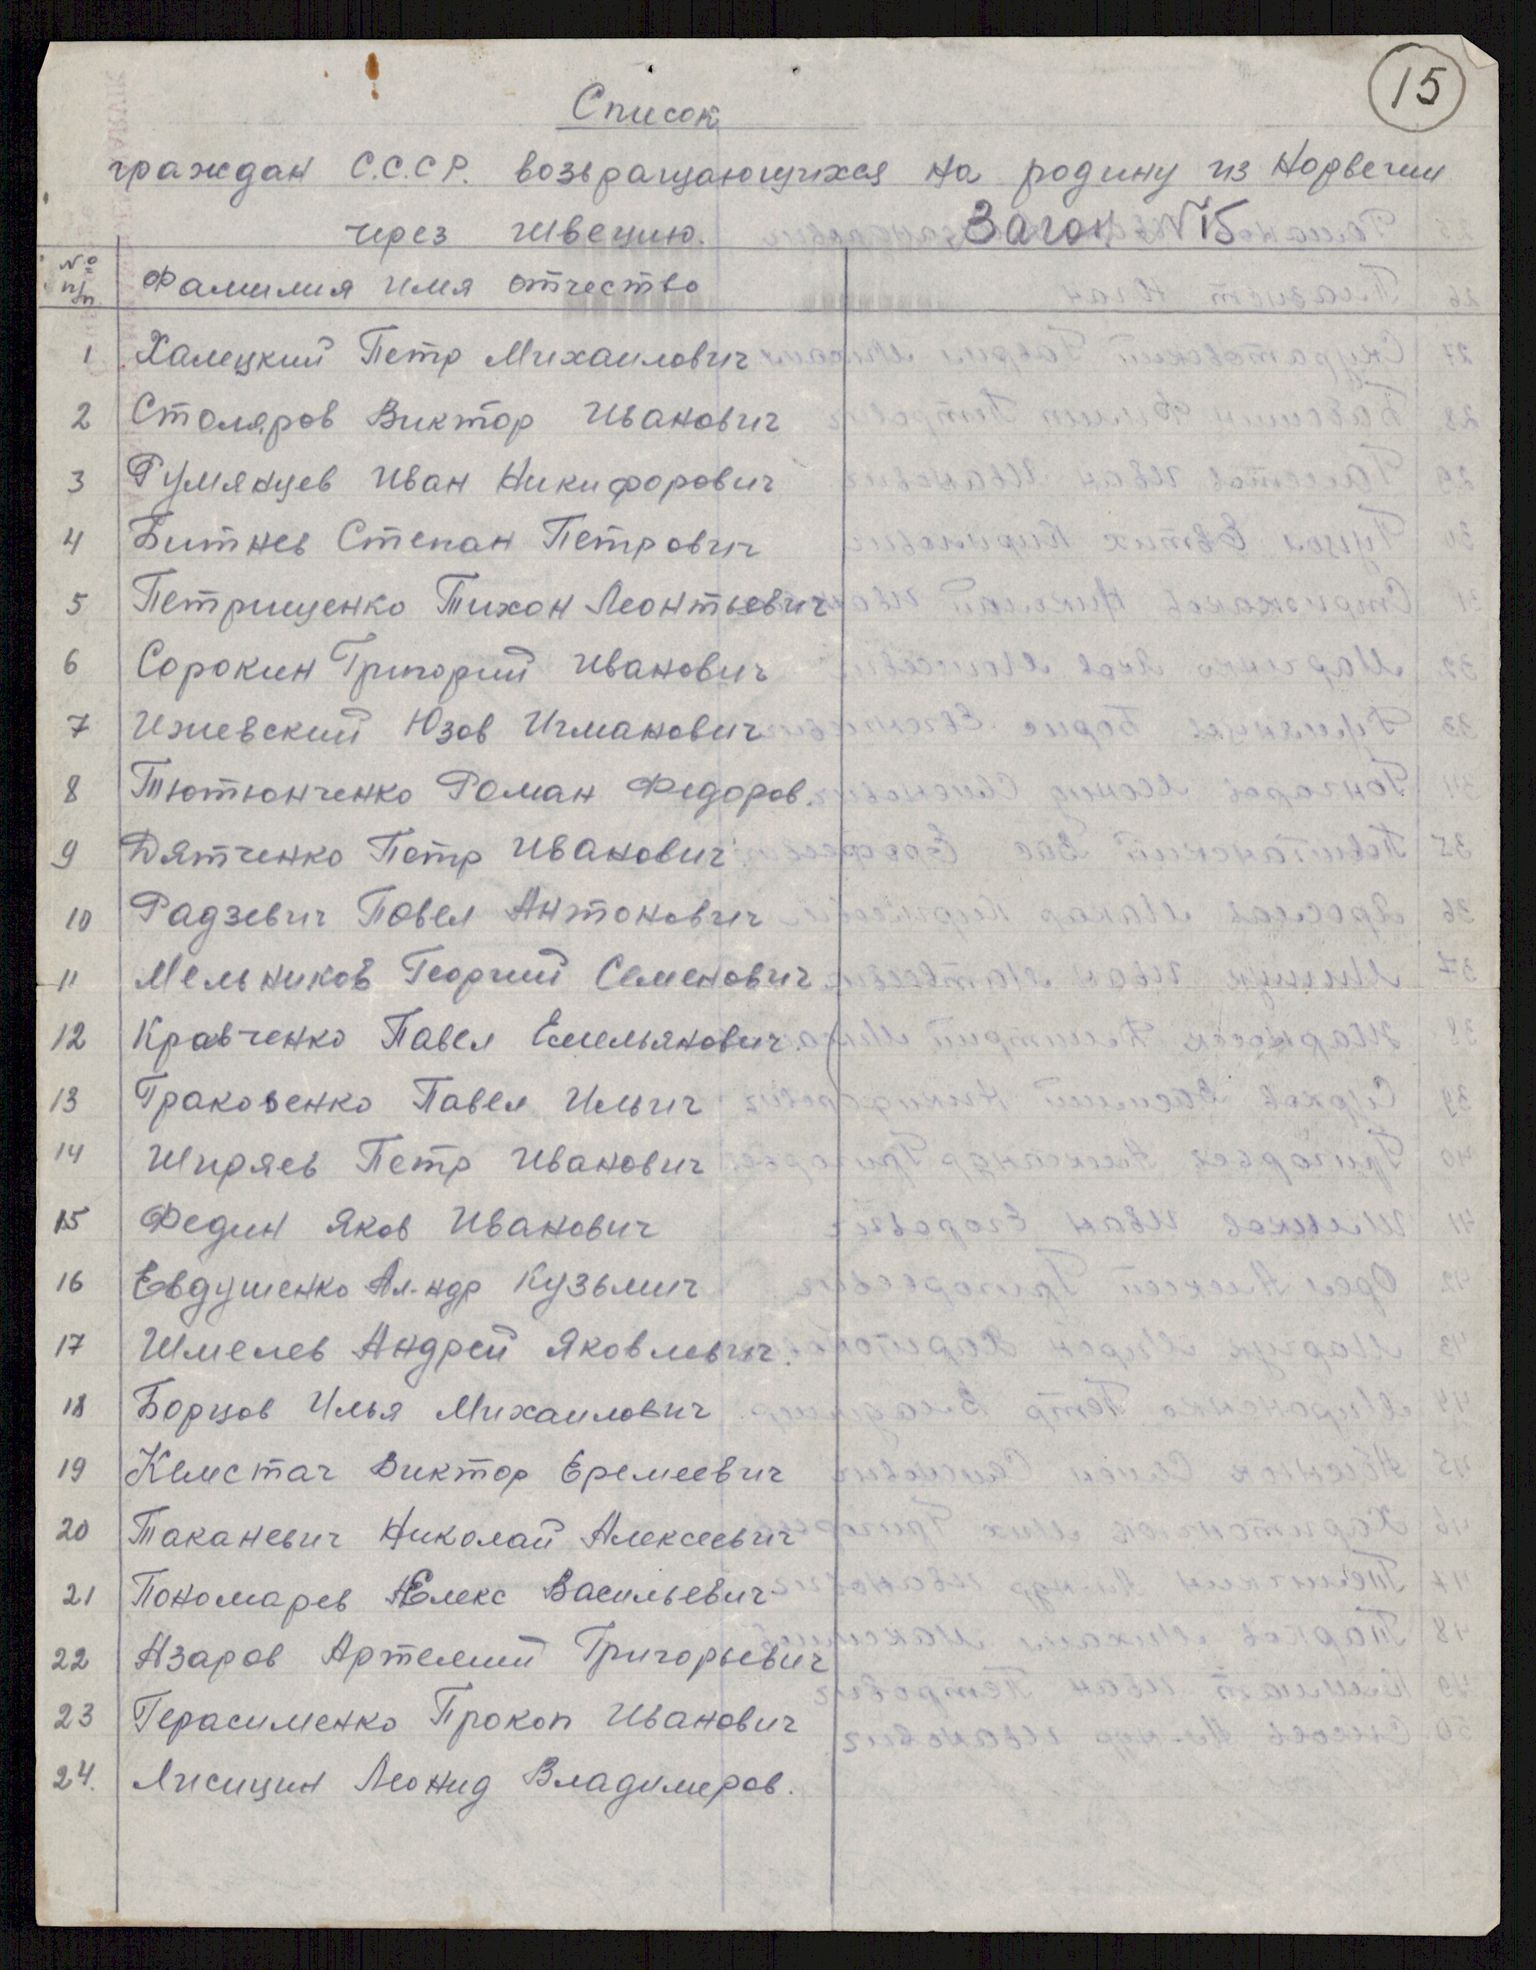 15
Список
граждан С.С.С.Р. возвращающихся на родину из Норвегии
через Швецию. Вагон №15
№ п/п Фамилия имя отчество
1 Халецкий Петр Михаилович
2 Столяров Виктор Иванович
3 Румянцев Иван Никифорович
4 Битнев Степан Петрович
5 Петрищенко Тихон Леонтьевич
6 Сорокин Григорий Иванович
7 Ижевский Юзов Игманович
8 Тютюнченко Роман Федоров.
9 Дятченко Петр Иванович
10 Радзевич Павел Антонович
11 Мельников Георгий Семенович
12 Кравченко Павел Емельянович.
13 Праковенко Павел Ильич
14 Ширяев Петр Иванович
15 Федин Яков Иванович
16 Евдушенко Ал-ндр Кузьмич
17 Шмелев Андрей Яковлевич.
18 Борцов Илья Михаилович
19 Кемстач Виктор Еремеевич
20 Таканевич Николай Алексеевич
21 Пономарев Алекс Васильевич
22 Азаров Артемий Григорьевич
23 Герасименко Прокоп Иванович
24. Лисицин Леонид Владимиров.